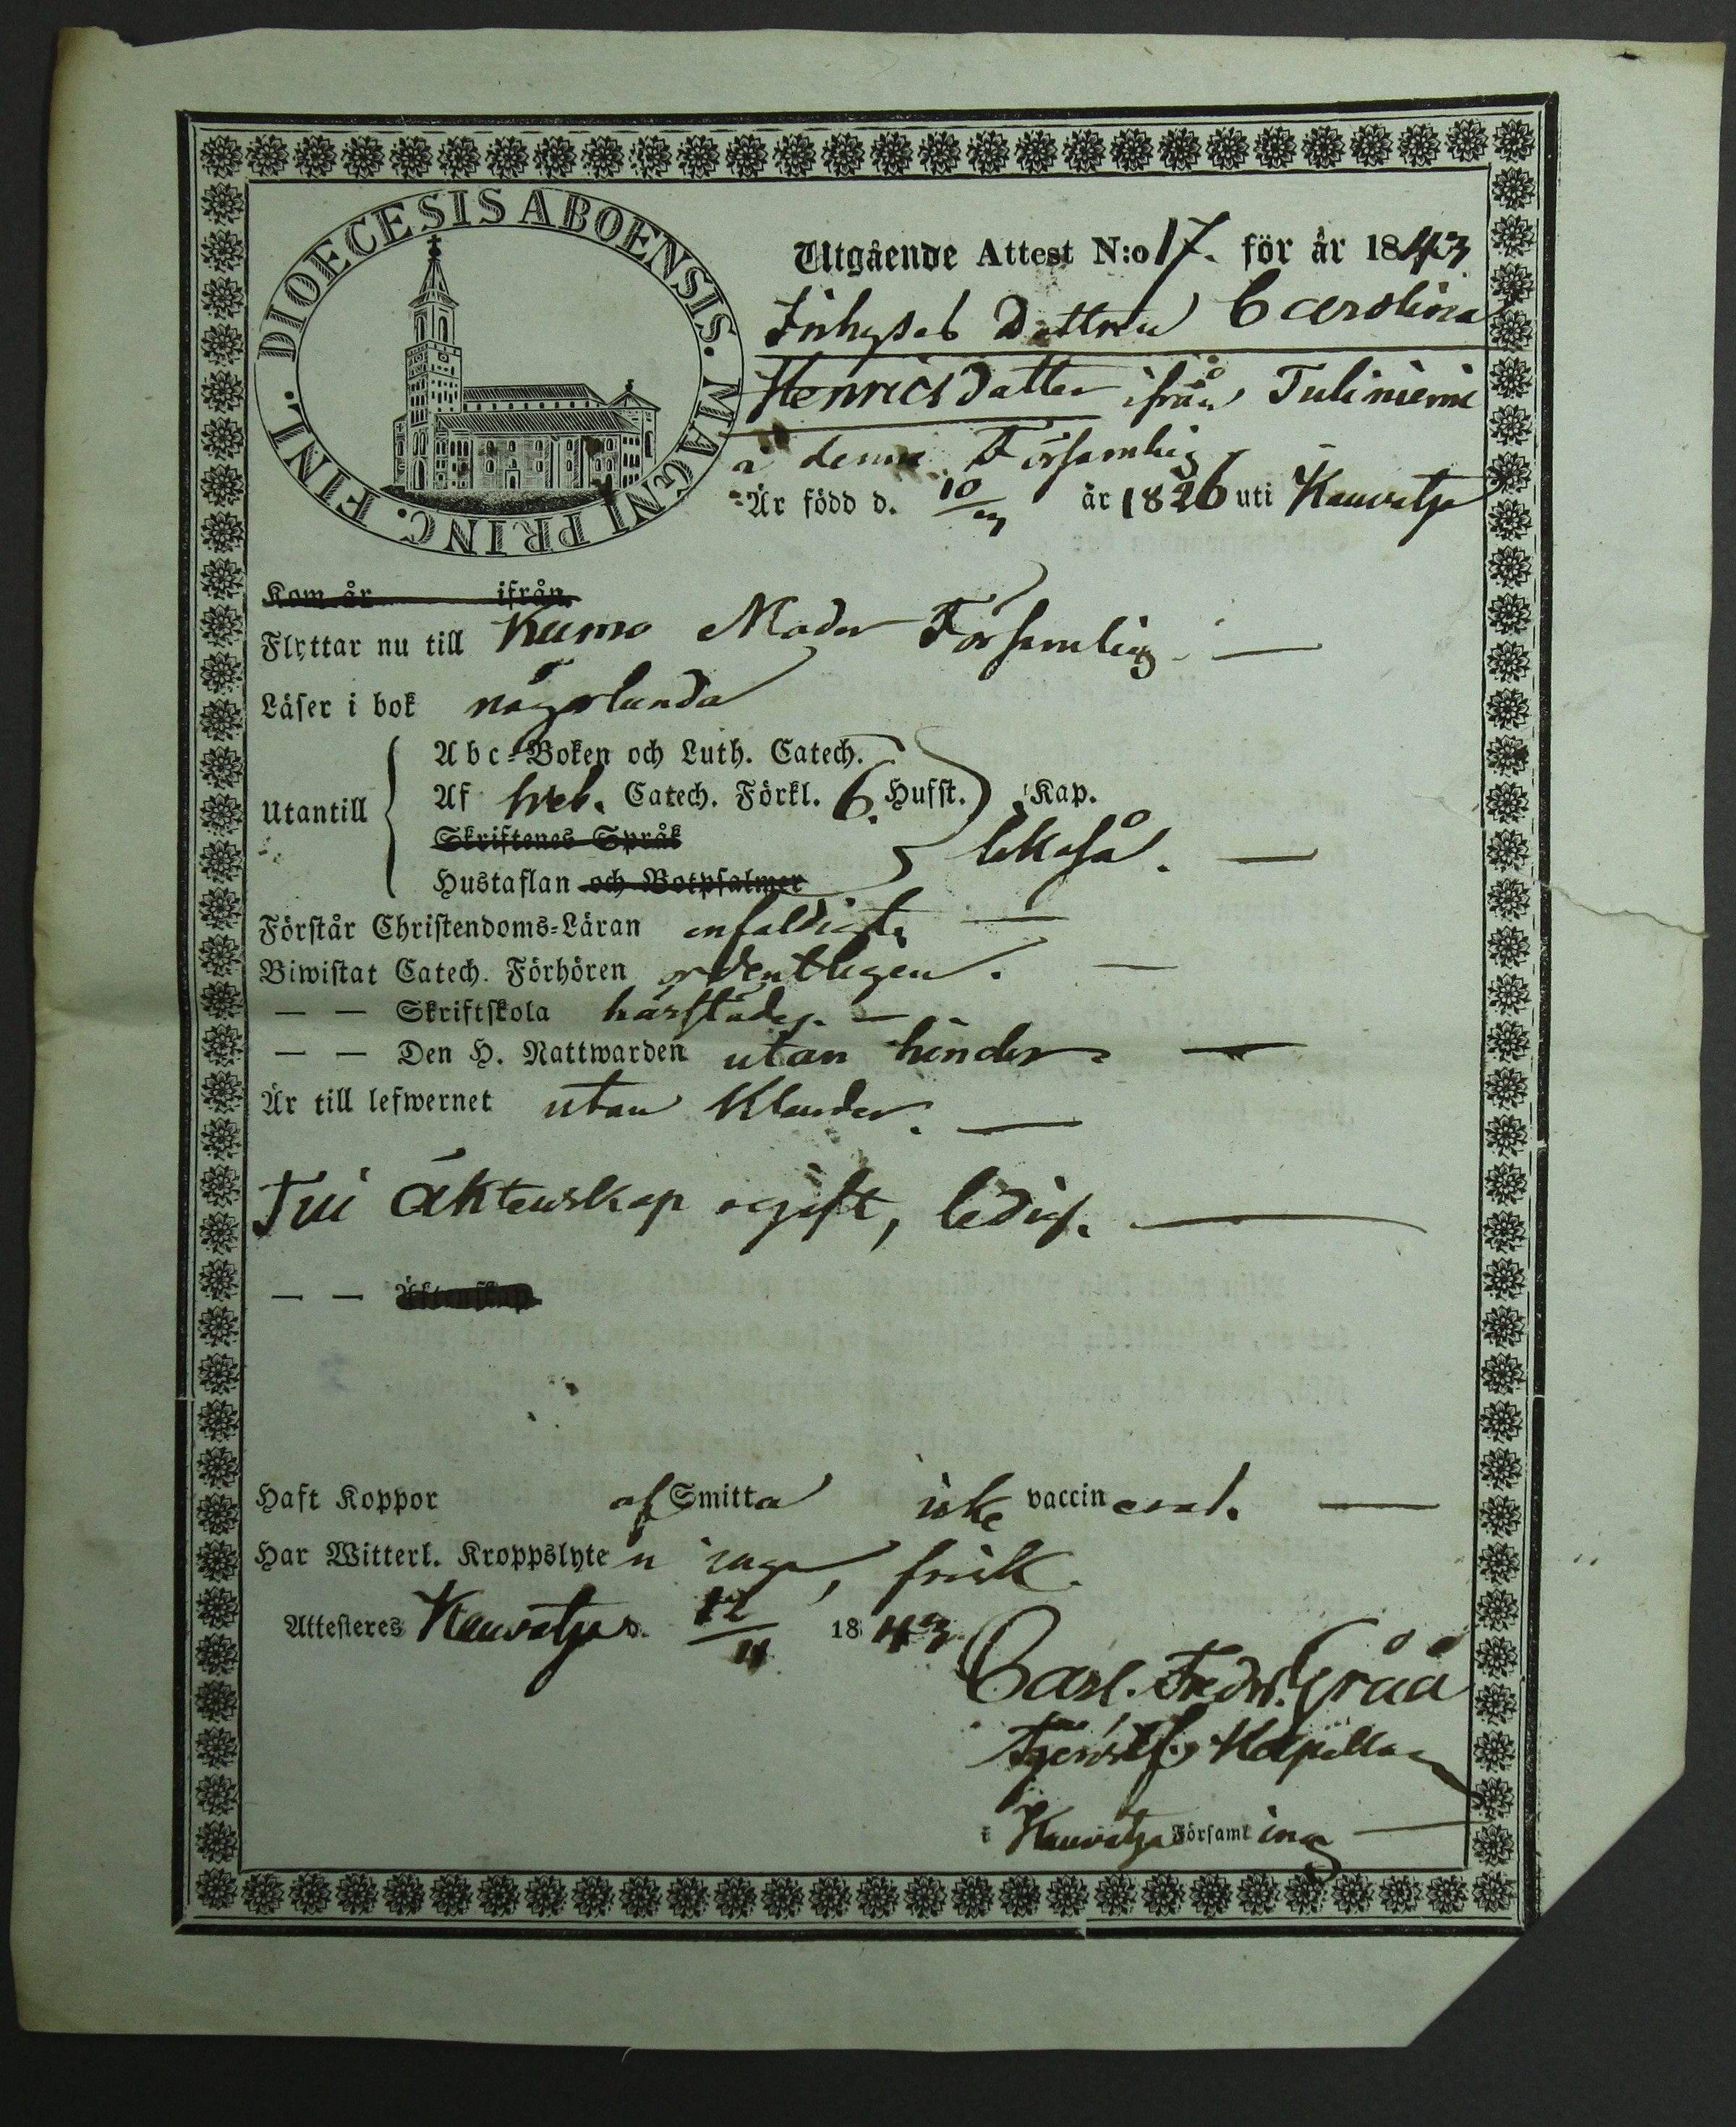 DIOECESIS ABOENSIS. MAGNI PRINC. FINL.
Utgående Attest N:o 17. för år 1843
Inhyses Dottren Carolina
Henricsdotter ifrån Tuliniemi
i denna Församling
Är född d. 10/ år 1826 uti Kauvatsa
Kom år ifrån
Flyttar nu till Kumo Moder Församling.
Läser i bok någorlunda
Utantill
Abc-Boken och Luth. Catech.
Af Catech. Förkl. 6. Hufst. Kap.
Skriftenes Språk
likaså.
Hustaflan och Botpsalmer
Förstår Christendoms-Läran enfaldigt.
Biwistat Catech. Förhören ordentligen.
— — Skriftskola härstädes. —
— — Den H. Nattwarden utan hinder
Är till lefwernet utan klander.
Till äktenskap ogift, ledig.
— — Äktenskap
Haft Koppor af Smitta icke vaccinerad.
Har Witterl. Kroppslyten inga, frisk.
Attesteres Kauvatsa d. 12/4 1843
Carl. Fredr. Gråå
Kapellan
i Kauvatsa Församling